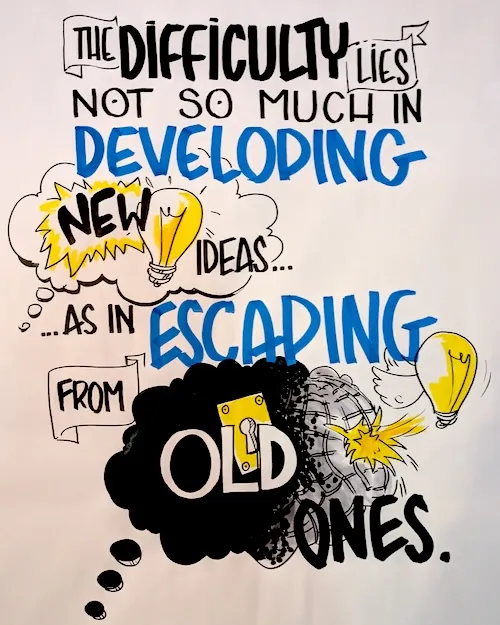 THE DIFFICULTY LIES
NOT SO MUCH IN
DEVELOPING
NEW IDEAS...
...AS IN ESCAPING
FROM
OLD
ONES.